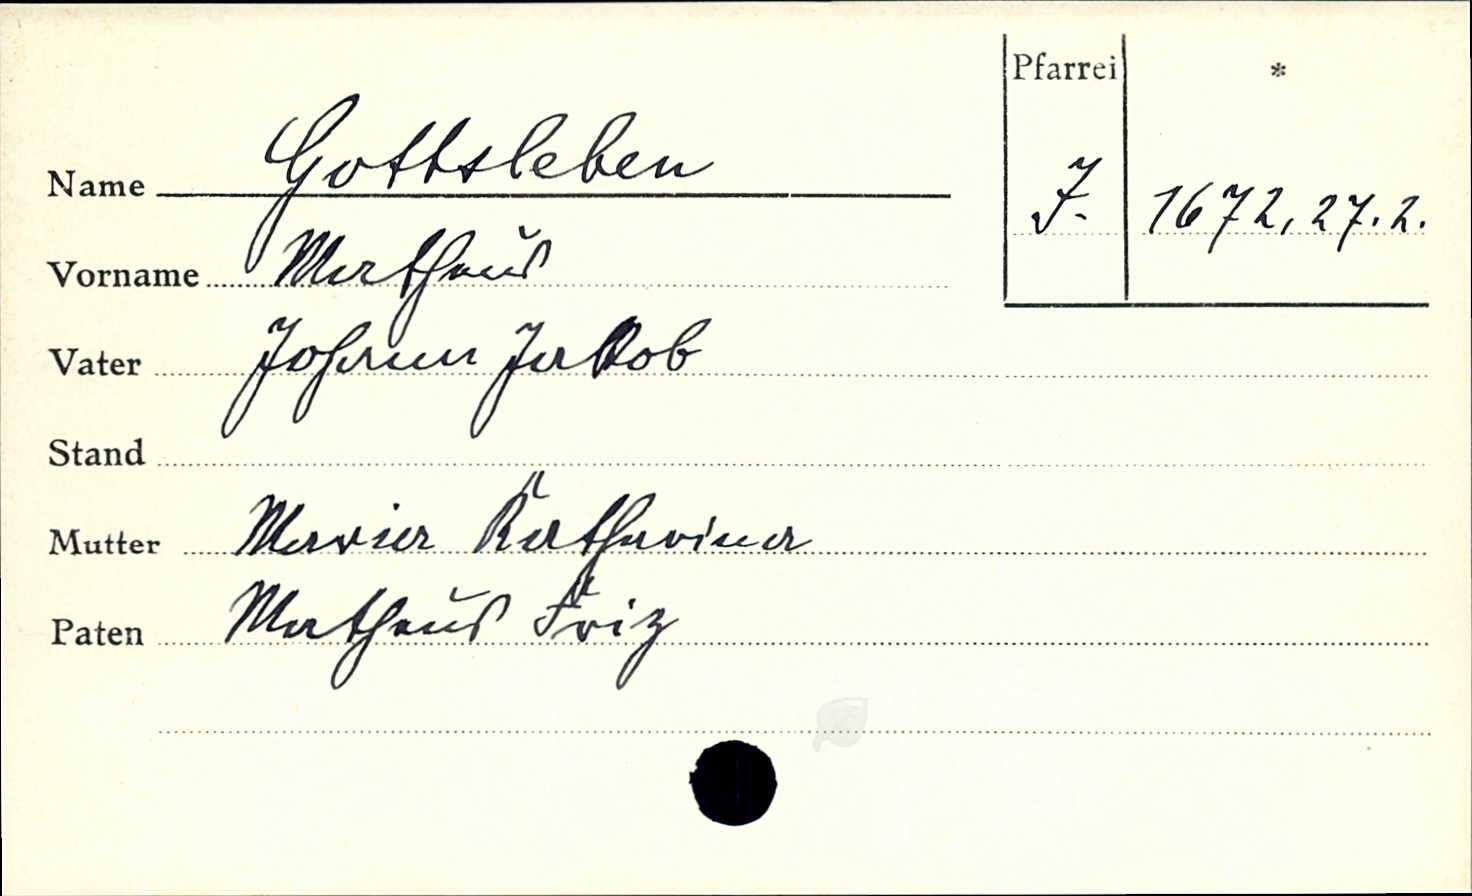 Pfarrei *
Name Gottsleben
J. 1672, 27.2.
Vorname Mathaüs
Vater Johann Jakob
Stand
Mutter Maria Katharina
Paten Mathaüs Friz